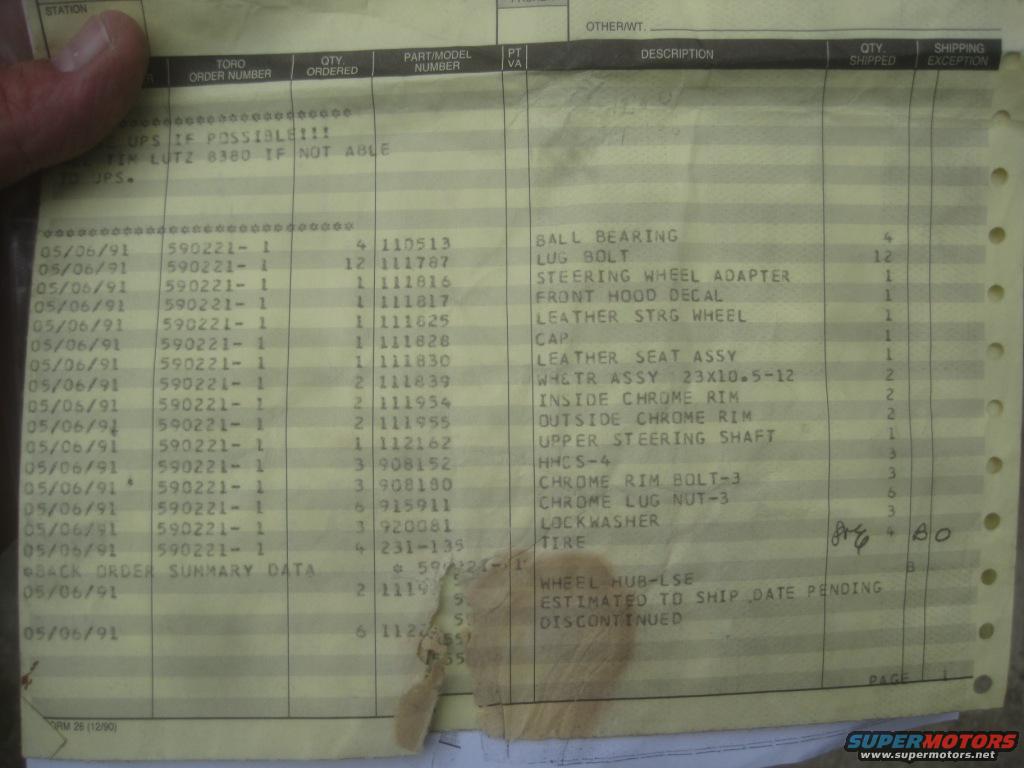 STATION
OTHER/WT.
TORO ORDER NUMBER QTY. ORDERED PART/MODEL NUMBER PT VA DESCRIPTION QTY. SHIPPED SHIPPING EXCEPTION
UPS IF POSSIBLE!!!
TIM LUTZ 8380 IF NOT ABLE
TO UPS.
05/06/91 590221- 1 4 110513 BALL BEARING 4
05/06/91 590221- 1 12 111787 LUG BOLT 12
05/06/91 590221- 1 1 111816 STEERING WHEEL ADAPTER 1
05/06/91 590221- 1 1 111817 FRONT HOOD DECAL 1
05/06/91 590221- 1 1 111825 LEATHER STRG WHEEL 1
05/06/91 590221- 1 1 111828 CAP 1
05/06/91 590221- 1 1 111830 LEATHER SEAT ASSY 1
05/06/91 590221- 1 2 111839 WH&TR ASSY 23X10.5-12 2
05/06/91 590221- 1 2 111954 INSIDE CHROME RIM 2
05/06/91 590221- 1 2 111955 OUTSIDE CHROME RIM 2
05/06/91 590221- 1 1 112162 UPPER STEERING SHAFT 1
05/06/91 590221- 1 3 908152 HHCS-4 3
05/06/91 590221- 1 3 908180 CHROME RIM BOLT-3 3
05/06/91 590221- 1 6 915911 CHROME LUG NUT-3 6
05/06/91 590221- 1 3 920081 LOCKWASHER 3
05/06/91 590221- 1 4 231-135 TIRE 4 BO
*BACK ORDER SUMMARY DATA * 590221- 1 B
05/06/91 2 WHEEL HUB-LSE
ESTIMATED TO SHIP DATE PENDING
05/06/91 6 DISCONTINUED
PAGE 1
FORM 26 (12/90)
SUPERMOTORS
www.supermotors.net